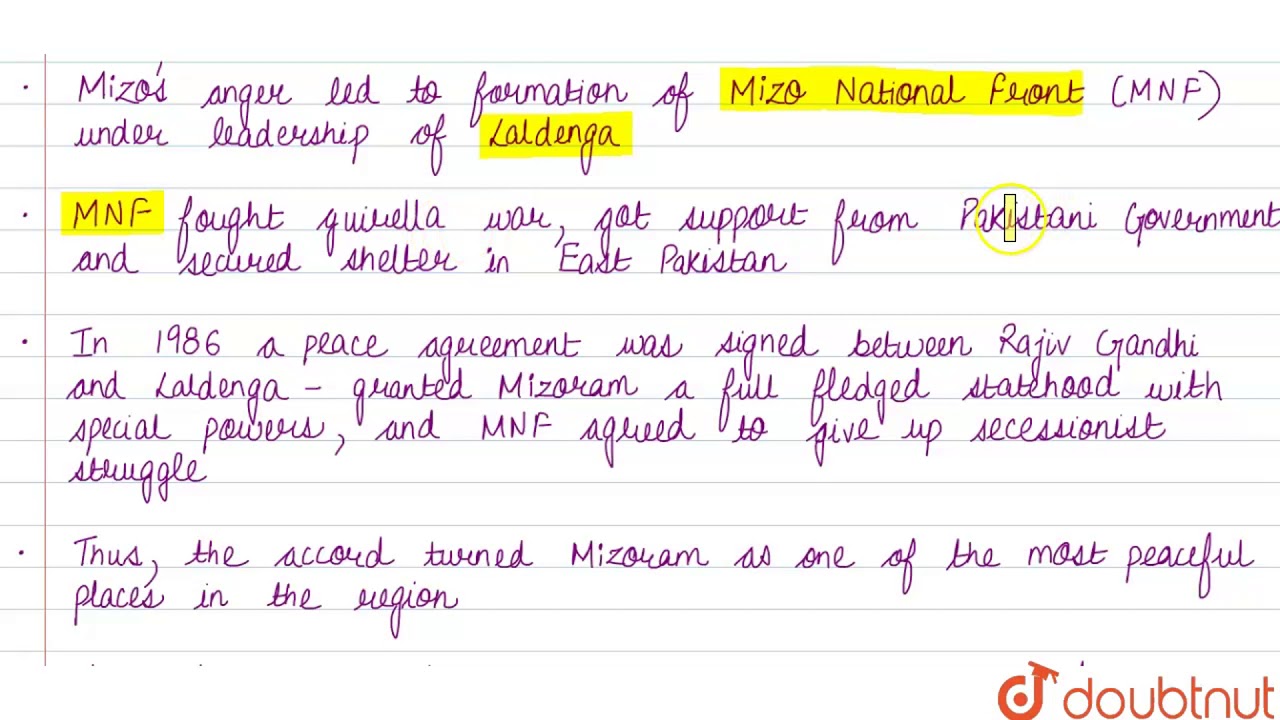 · Mizo's anger led to formation of Mizo National Front (MNF)
under leadership of Laldenga
· MNF fought guirella war, got support from Pakistani Government
and secured shelter in East Pakistan
· In 1986 a peace agreement was signed between Rajiv Gandhi
and Laldenga – granted Mizoram a full fledged statehood with
special powers, and MNF agreed to give up secessionist
struggle
· Thus, the accord turned Mizoram as one of the most peaceful
places in the region
doubtnut